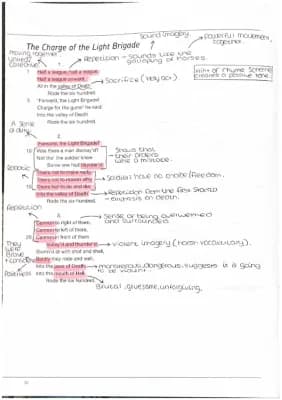 Sound Imagery.
powerful movement, together.
Moving together, united/
collective
The Charge of the Light Brigade
Repetition - sounds like the
galloping of horses.
with of rhyme scheme
creates a positive tone.
1
Half a league, half a league,
Half a league onward,
Sacrifice (very act).
All in the valley of Death
Rode the six hundred.
5 'Forward, the Light Brigade!
Charge for the guns!' he said:
Into the valley of Death
Rode the six hundred.
A sense
of duty
2
'Forward, the Light Brigade!'
10 Was there a man dismay'd?
Not tho' the soldier knew
Some one had blunder'd:
Shows that
their orders
were a mistake.
Robotic
Theirs not to make reply,
Theirs not to reason why,
15 Theirs but to do and die:
Soldiers have no choice/freedom.
Into the valley of Death
Rode the six hundred.
Repetition from the first stanza
- emphasis on death.
Repetition
3
Cannon to right of them,
Cannon to left of them,
20 Cannon in front of them
Sense of being overwhelmed
and surrounded.
Volley'd and thunder'd;
violent imagery (harsh vocabulary).
They
were
Brave
+ confident
Storm'd at with shot and shell,
Boldly they rode and well,
Into the jaws of Death,
monsterous, dangerous, suggests it is going
to be violent
25 Into the mouth of Hell
Rode the six hundred.
Brutal, gruesome, unforgiving.